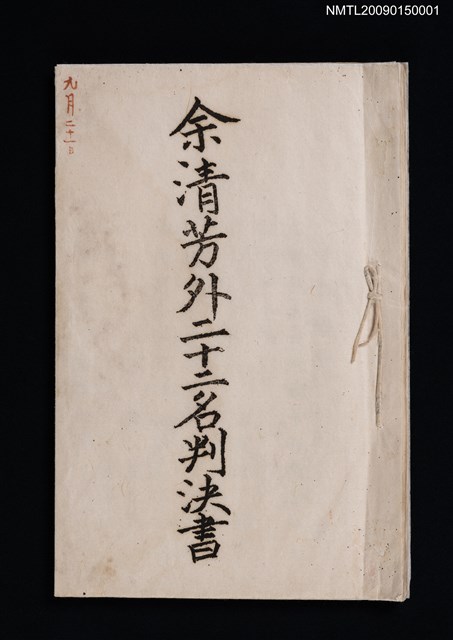 NMTL20090150001
九月二十一日
余清芳外二十二名判決書